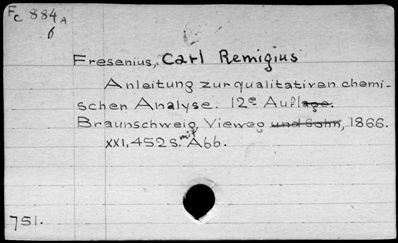 Fc 884 A
6
Fresenius, Carl Remigius
Anleitung zur qualitativen chemi-
schen Analyse. 12e Auflage.
Braunschweig, Vieweg und Sohn, 1866.
XXI, 452 S. mit Abb.
751.